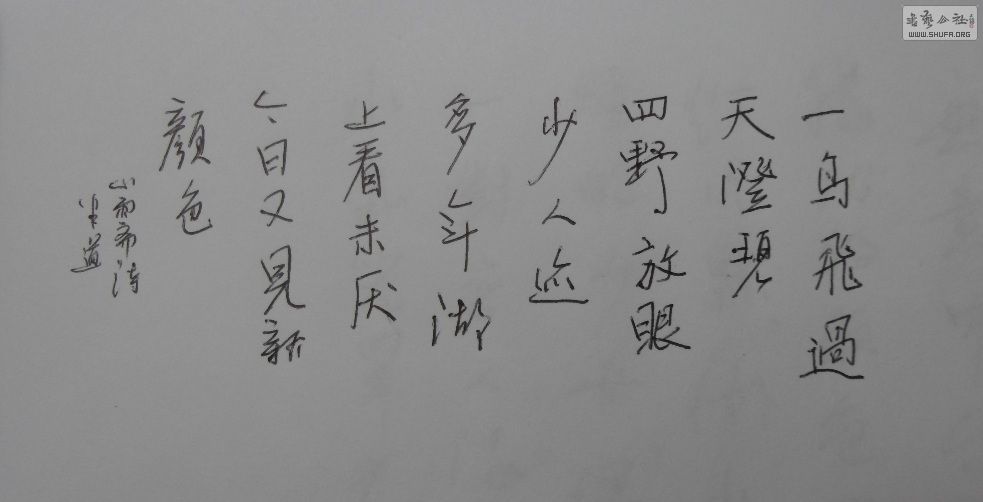 一鳥飛過
天澄碧
四野放眼
少人迹
多年湖
上看未厌
今日又見新
顔色
小雨齋诗
坐道
書藝公社
WWW.SHUFA.ORG